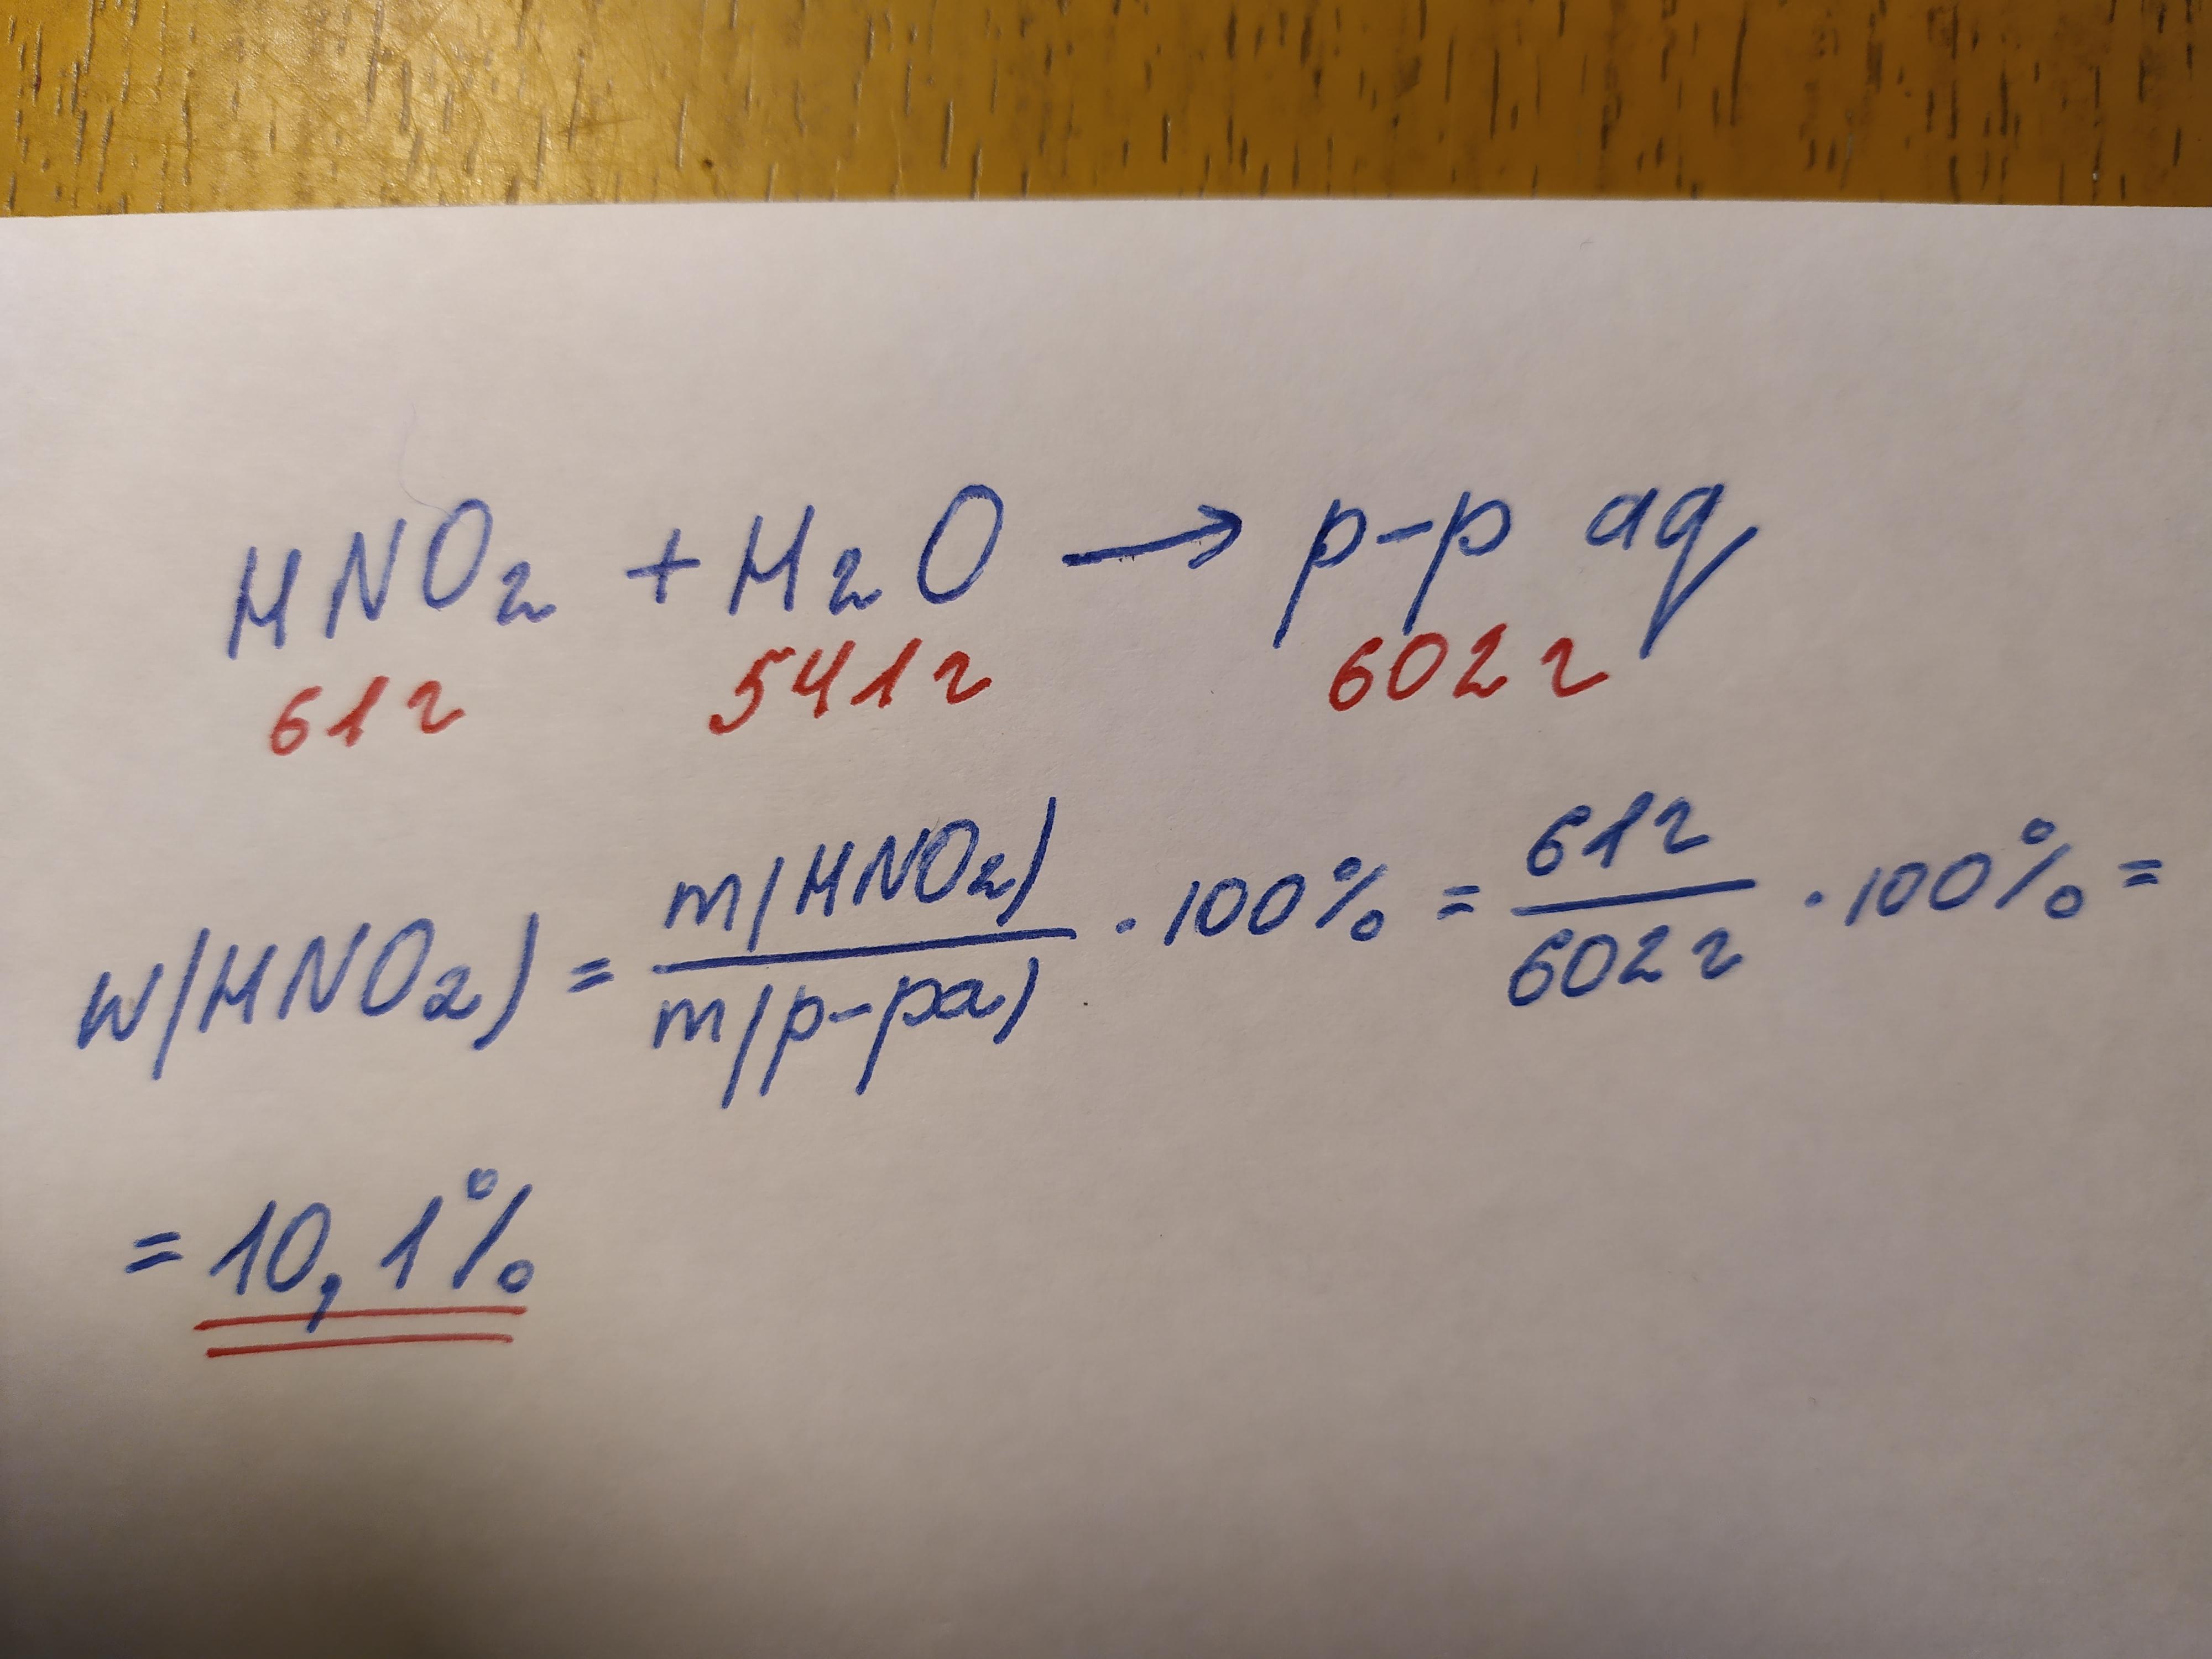 HNO₂ + H₂O → р-р aq
61г 541г 602г
w(HNO₂) = m(HNO₂)/m(р-ра) · 100% = 61г/602г · 100% =
= 10,1%